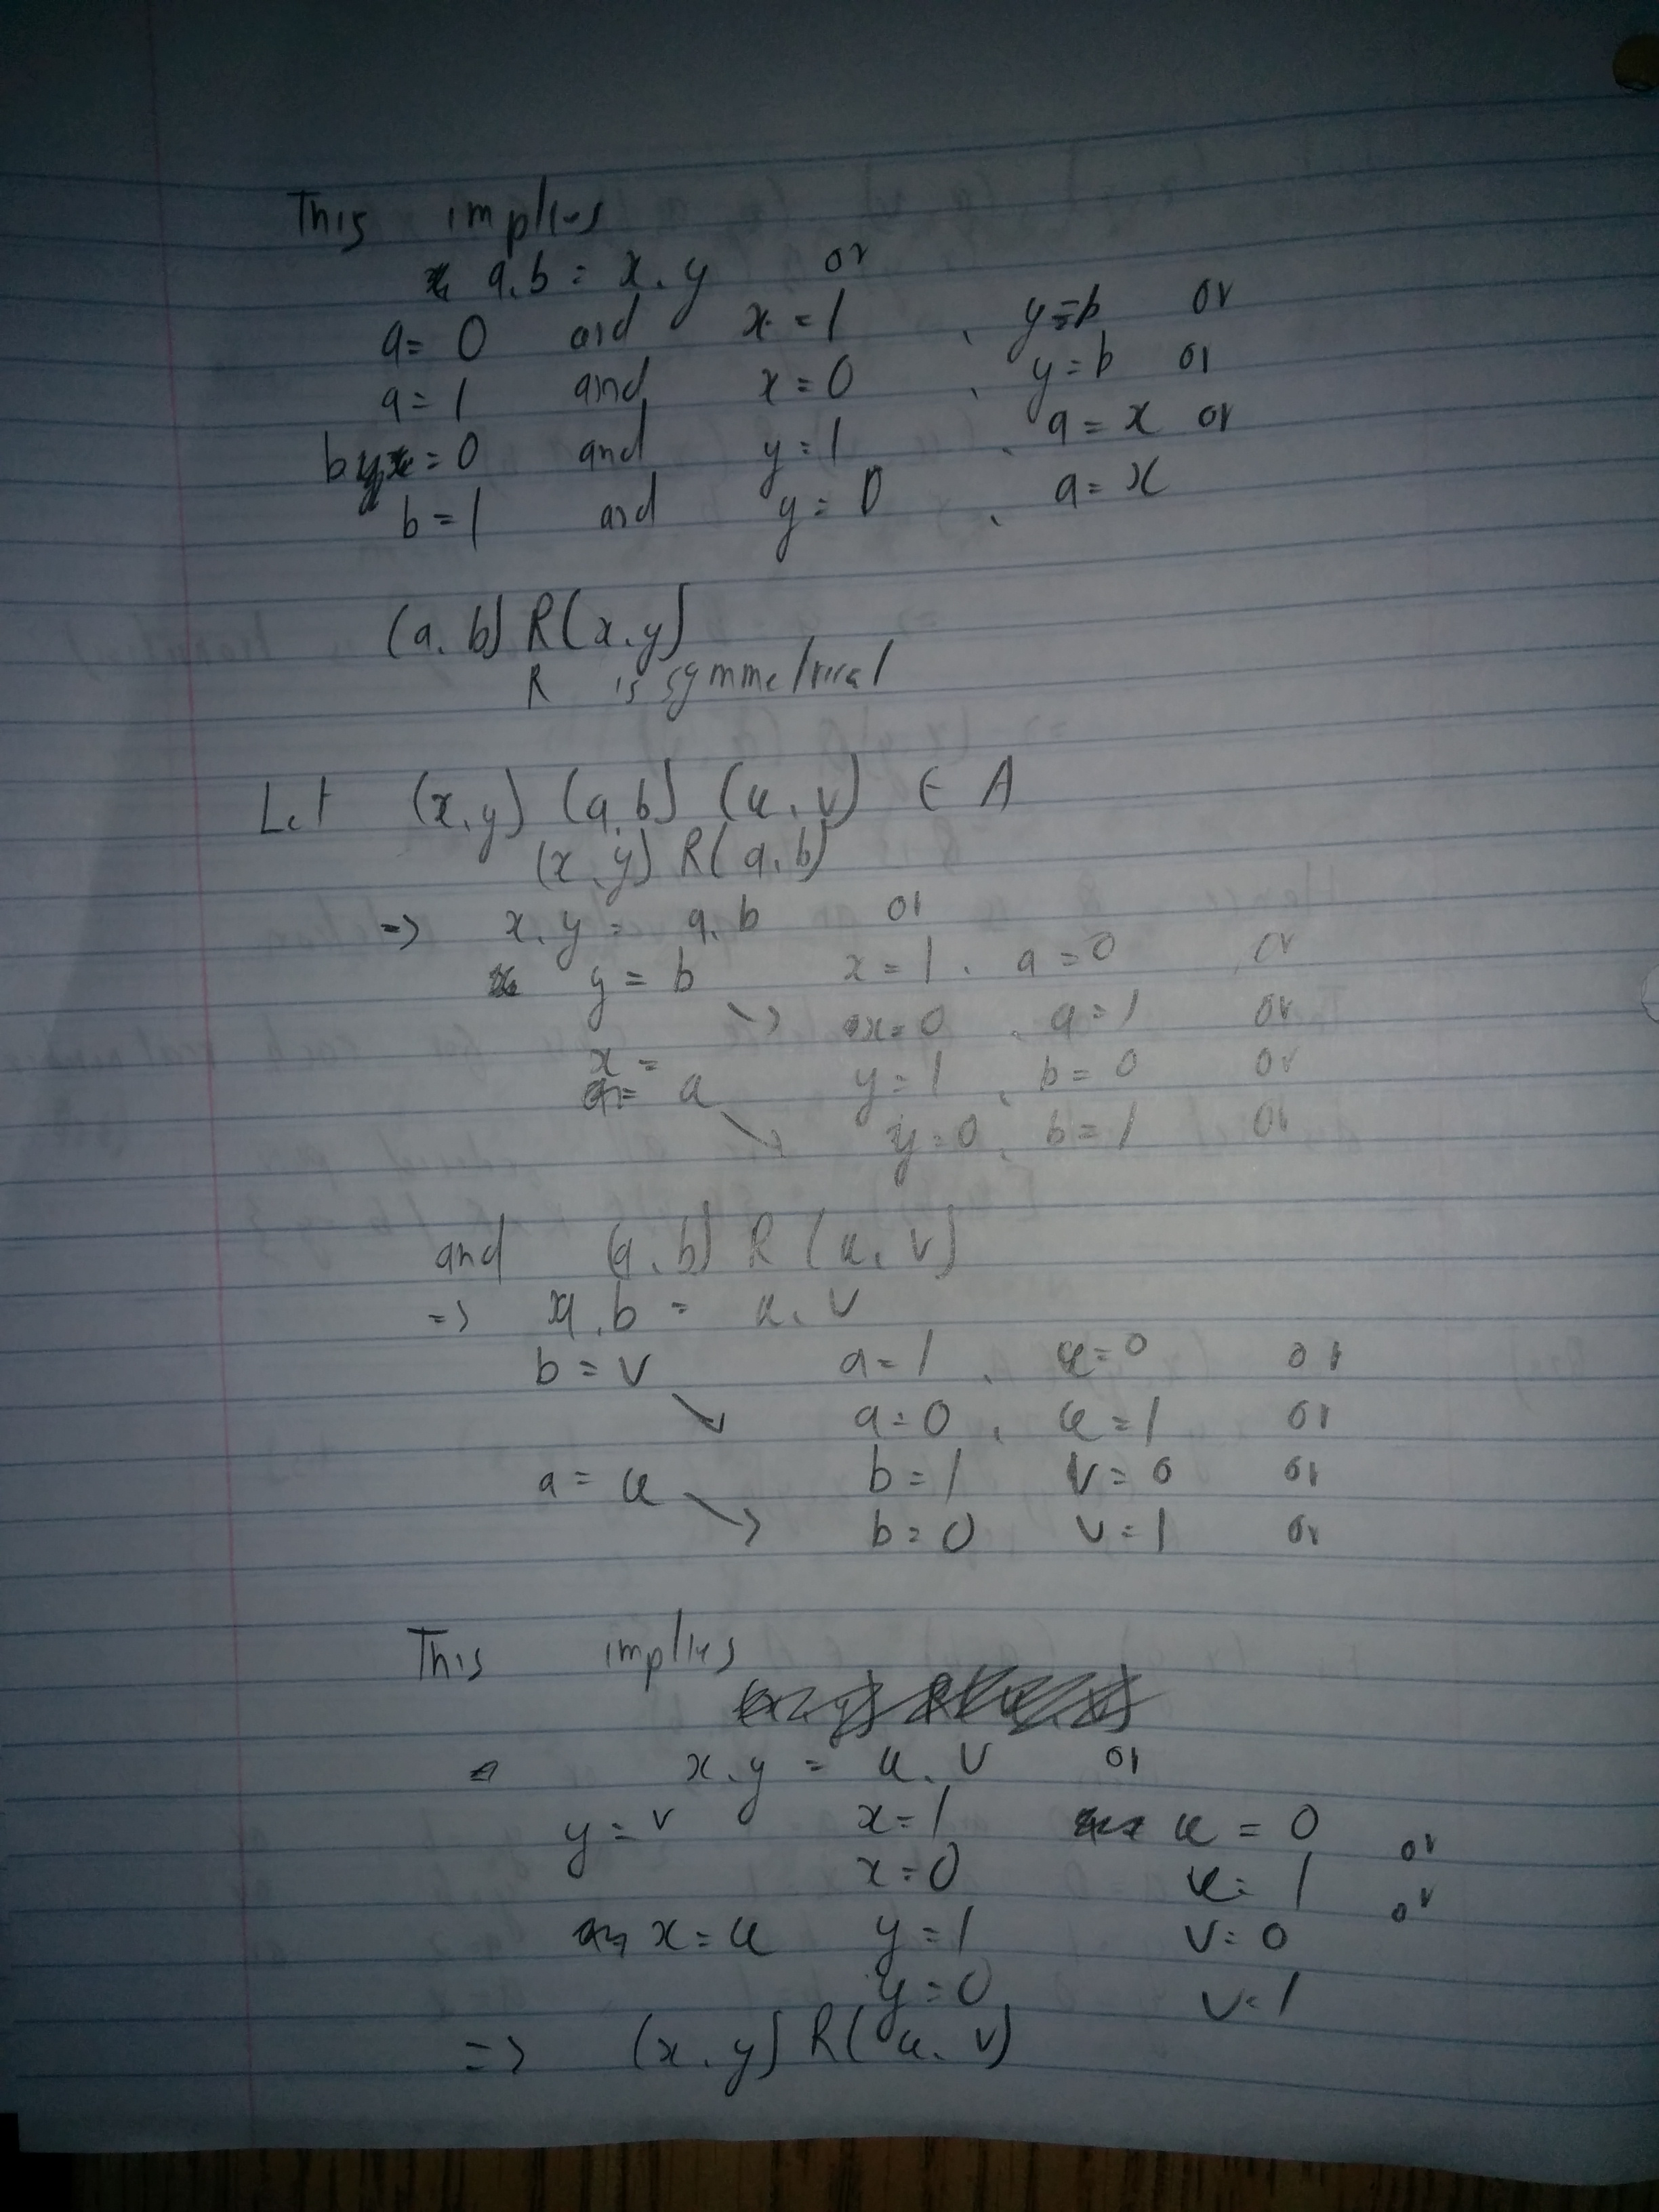 This implies
a.b = x.y or
a = 0 and x = 1, y = b or
a = 1 and x = 0, y = b or
b = 0 and y = 1, a = x or
b = 1 and y = 0, a = x
(a,b) R(x,y)
R is symmetrical
Let (x,y) (a,b) (u,v) ∈ A
(x,y) R(a,b)
=> x,y = a,b or
y = b x = 1, a = 0 or
-> x = 0, a = 1 or
x = a y = 1, b = 0 or
-> y = 0, b = 1 or
and (a,b) R (u,v)
=> a,b = u,v
b = v a = 1, u = 0 or
-> a = 0, u = 1 or
a = u b = 1 v = 0 or
-> b = 0 v = 1 or
This implies
x,y = u,v or
y = v x = 1 u = 0 or
x = 0 u = 1 or
x = u y = 1 v = 0
y = 0 v = 1
=> (x,y) R(u,v)